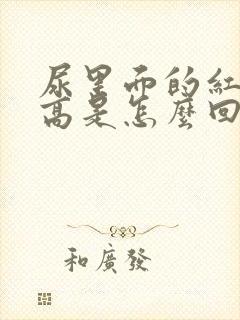 尿里面的紅
高是怎麼回
和廣發